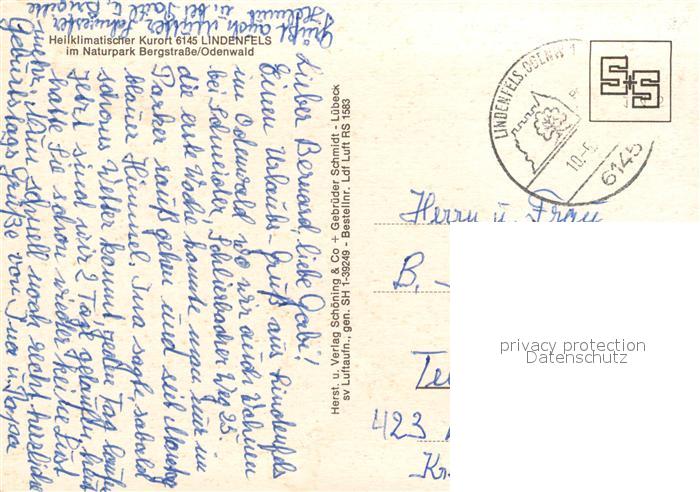 Heilklimatischer Kurort 6145 LINDENFELS
im Naturpark Bergstraße/Odenwald
Lieber Bernard, liebe Gabi!
Einen Urlaubs-Gruß aus Lindenfels
im Odenwald, wo wir auch wohnen
bei Schneider, Schlierbacher Weg 25.
die erste Woche konnte man nur im
Parker raus gehen und seit Montag
blauer Himmel. Ina sagt, sobald
schönes Wetter kommt, jeden Tag laufen
Jetzt sind wir 2 Tage gelaufen, heute
hatte Sie schon wieder keine Lust
mehr. Nun schnell noch recht herzliche
Geburtstags Grüße von Ina u. Papa
Grüßt auch Mutter, Schwester
Helmut u. bei Brigitte
Herst. u. Verlag Schöning & Co + Gebrüder Schmidt - Lübeck
sv Luftaufn., gen. SH 1-39249 - Bestellnr. Ldf Luft RS 1583
LINDENFELS, ODENW 1
10.-6.
6145
S+S
Herrn u. Frau
B.
423
privacy protection
Datenschutz